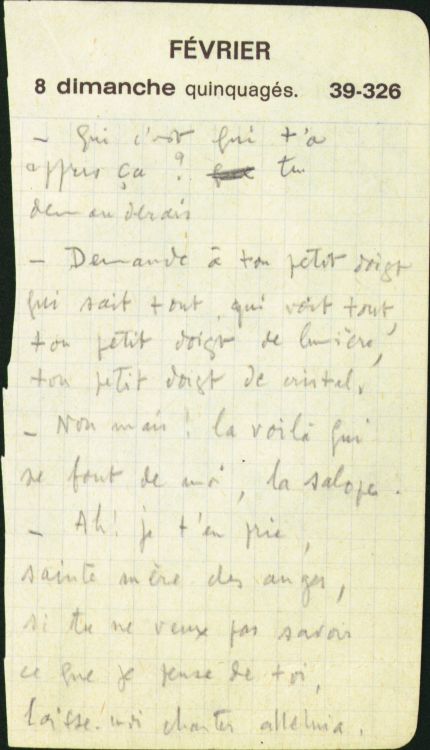 FÉVRIER
8 dimanche quinquagés. 39-326
– Qui c'est qui t'a
appris ça ? que tu
demanderais
– Demande à ton petit doigt
qui sait tout, qui voit tout,
ton petit doigt de lumière,
ton petit doigt de cristal.
– Non mais ! la voilà qui
se fout de moi, la salope.
– Ah ! je t'en prie,
sainte mère des anges,
si tu ne veux pas savoir
ce que je pense de toi,
laisse-moi chanter alleluia.